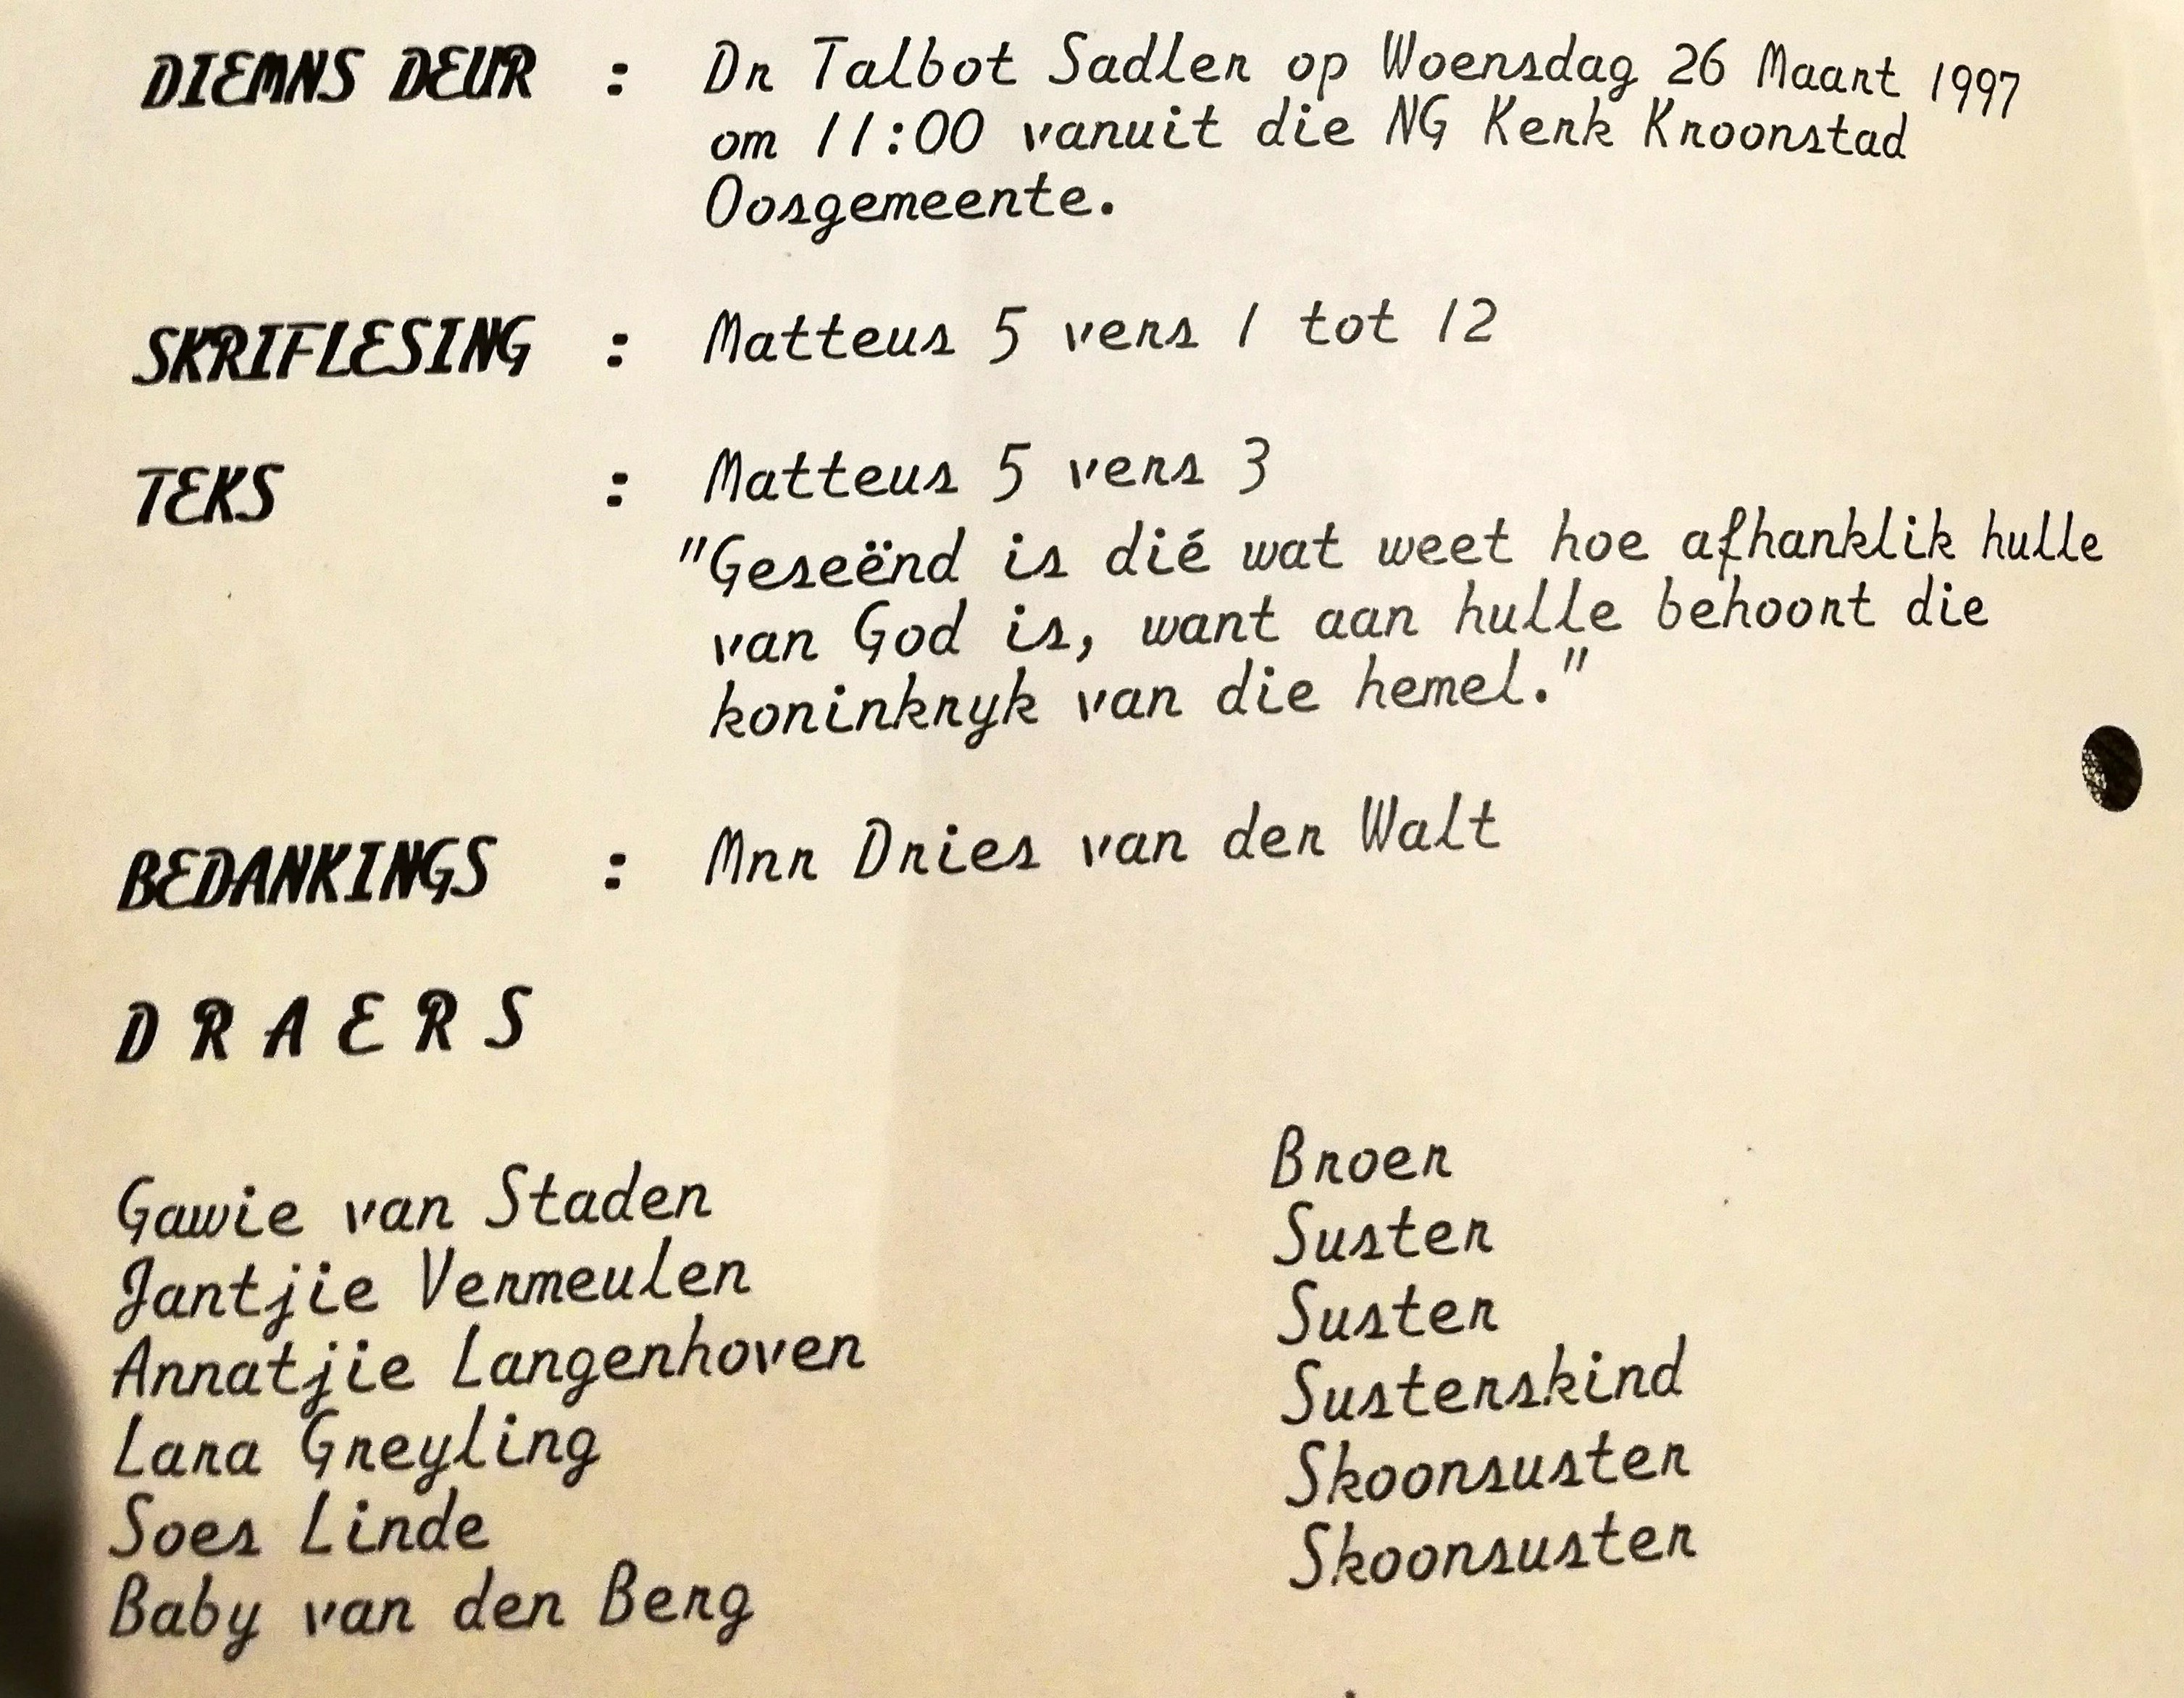 DIEMNS DEUR : Dr Talbot Sadler op Woensdag 26 Maart 1997
om 11:00 vanuit die NG Kerk Kroonstad
Oosgemeente.
SKRIFLESING : Matteus 5 vers 1 tot 12
TEKS : Matteus 5 vers 3
"Geseënd is dié wat weet hoe afhanklik hulle
van God is, want aan hulle behoort die
koninkryk van die hemel."
BEDANKINGS : Mnr Dries van der Walt
D R A E R S
Gawie van Staden Broer
Jantjie Vermeulen Suster
Annatjie Langenhoven Suster
Lara Greyling Susterskind
Soes Linde Skoonsuster
Baby van den Berg Skoonsuster